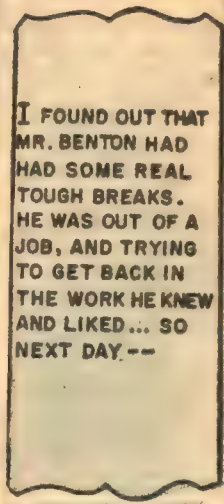 I FOUND OUT THAT
MR. BENTON HAD
HAD SOME REAL
TOUGH BREAKS.
HE WAS OUT OF A
JOB, AND TRYING
TO GET BACK IN
THE WORK HE KNEW
AND LIKED... SO
NEXT DAY.--